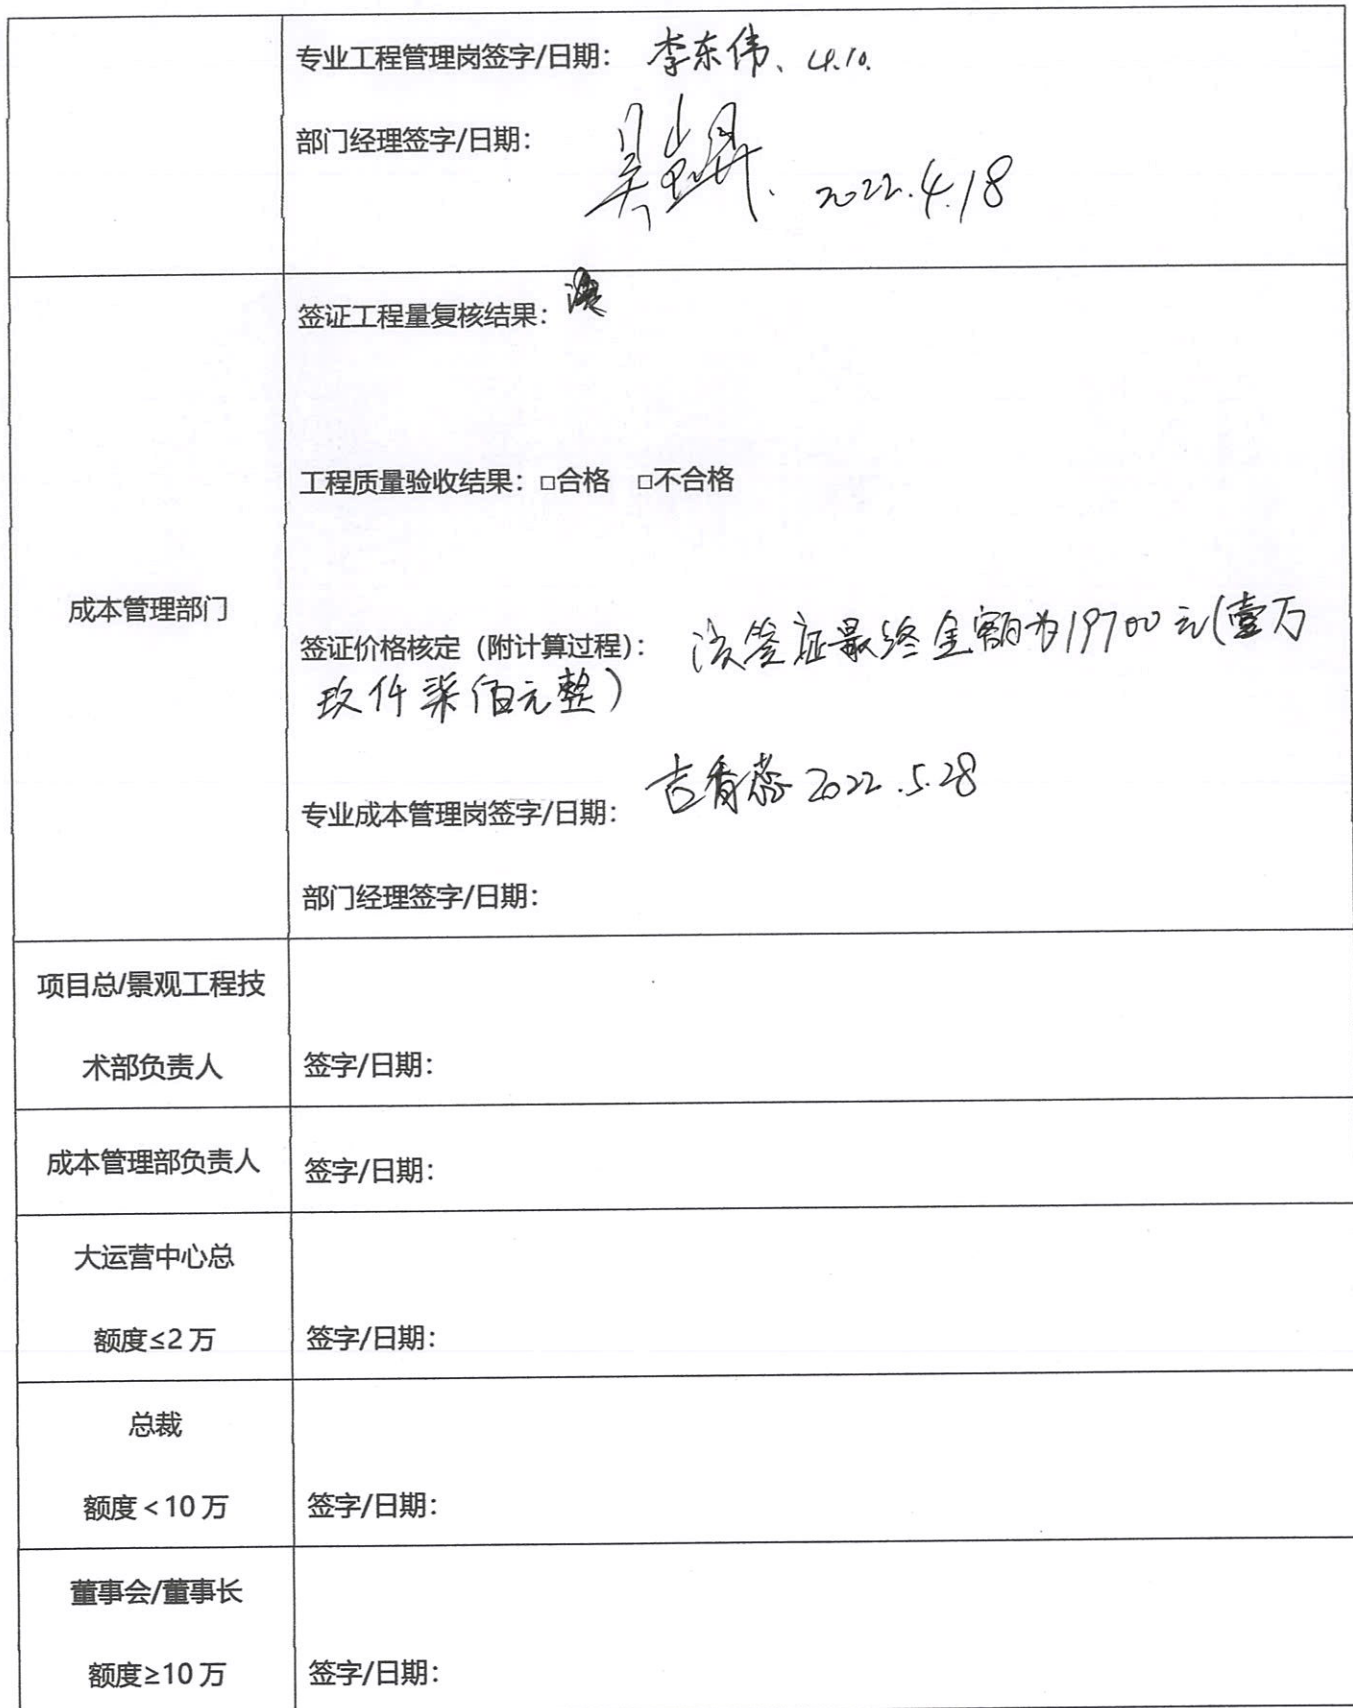 专业工程管理岗签字/日期： 李东伟、4.10.
部门经理签字/日期：
2022.4.18
签证工程量复核结果：
工程质量验收结果：□合格 □不合格
成本管理部门
签证价格核定（附计算过程）： 该签证最终金额为19700元(壹万
玖仟柒佰元整)
吉香蕊 2022.5.28
专业成本管理岗签字/日期：
部门经理签字/日期：
项目总/景观工程技
术部负责人
签字/日期：
成本管理部负责人
签字/日期：
大运营中心总
额度≤2万
签字/日期：
总裁
额度<10万
签字/日期：
董事会/董事长
额度≥10万
签字/日期：